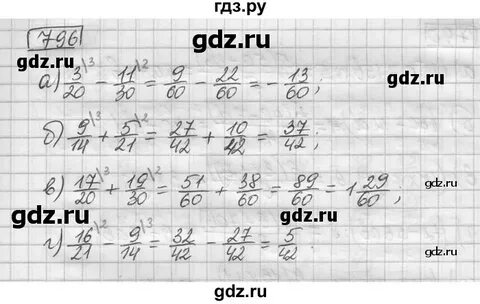 гдз.ру
796
gdz.ru gdz.ru
а) 3/20 \3 − 11/30 \2 = 9/60 − 22/60 = − 13/60 ;
gdz.ru gdz.ru
б) 9/14 \3 + 5/21 \2 = 27/42 + 10/42 = 37/42 ;
gdz.ru gdz.ru
в) 17/20 \3 + 19/30 \2 = 51/60 + 38/60 = 89/60 = 1 29/60 ;
gdz.ru gdz.ru
г) 16/21 \2 − 9/14 \3 = 32/42 − 27/42 = 5/42 .
gdz.ru gdz.ru